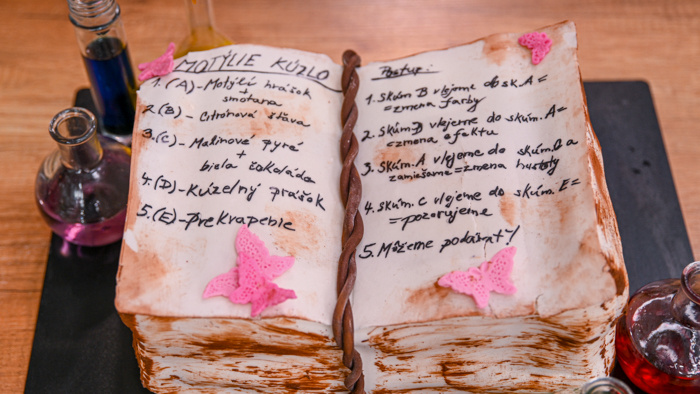 MOTÝLIE KÚZLO
1. (A) - Motýlí hrášok
+
smotana
2. (B) - Citrónová šťava
3. (C) - Malinové pyré
+
biela čokoláda
4. (D) - Kúzelný prášok
5. (E) - Prekvapenie
Postup:
1. Skúm B vlejeme do sk. A =
= zmena farby
2. Skúm. D vlejeme do skúm. A =
= zmena efektu
3. Skúm. A vlejeme do skúm. a
zamiešame = zmena hustoty
4. Skúm. C vlejeme do skúm. E =
= pozorujeme
5. Môžeme podávať!